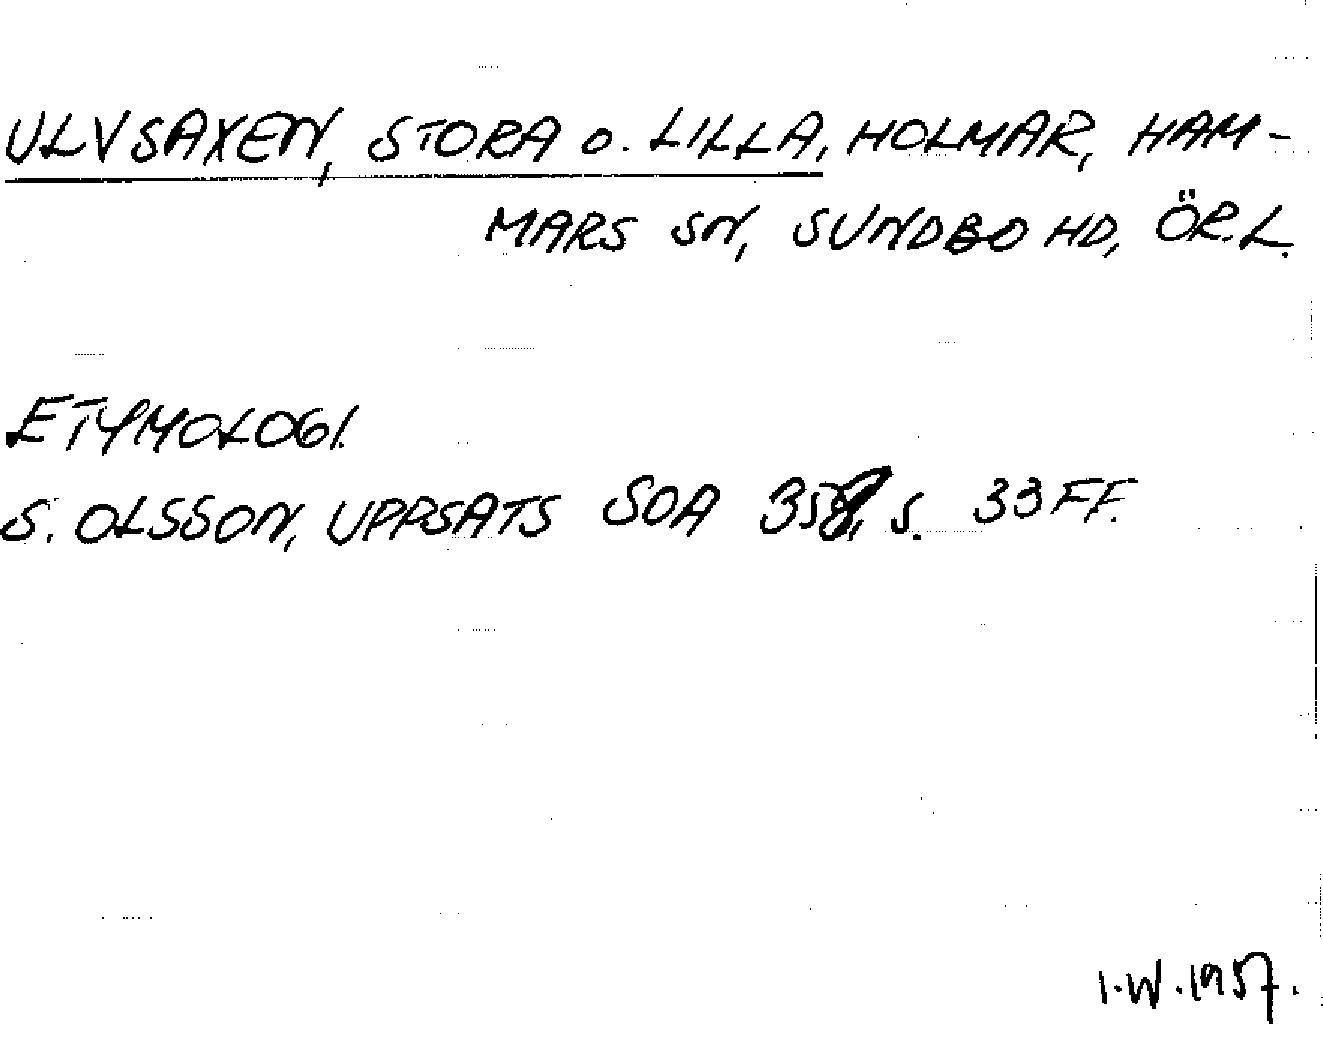 ULVSAXEN, STORA o. LILLA, HOLMAR, HAM-
MARS SN, SUNDBO HD, ÖR.L.
ETYMOLOGI.
S. OLSSON, UPPSATS SOA s. 33 FF.
I.W. 1957.